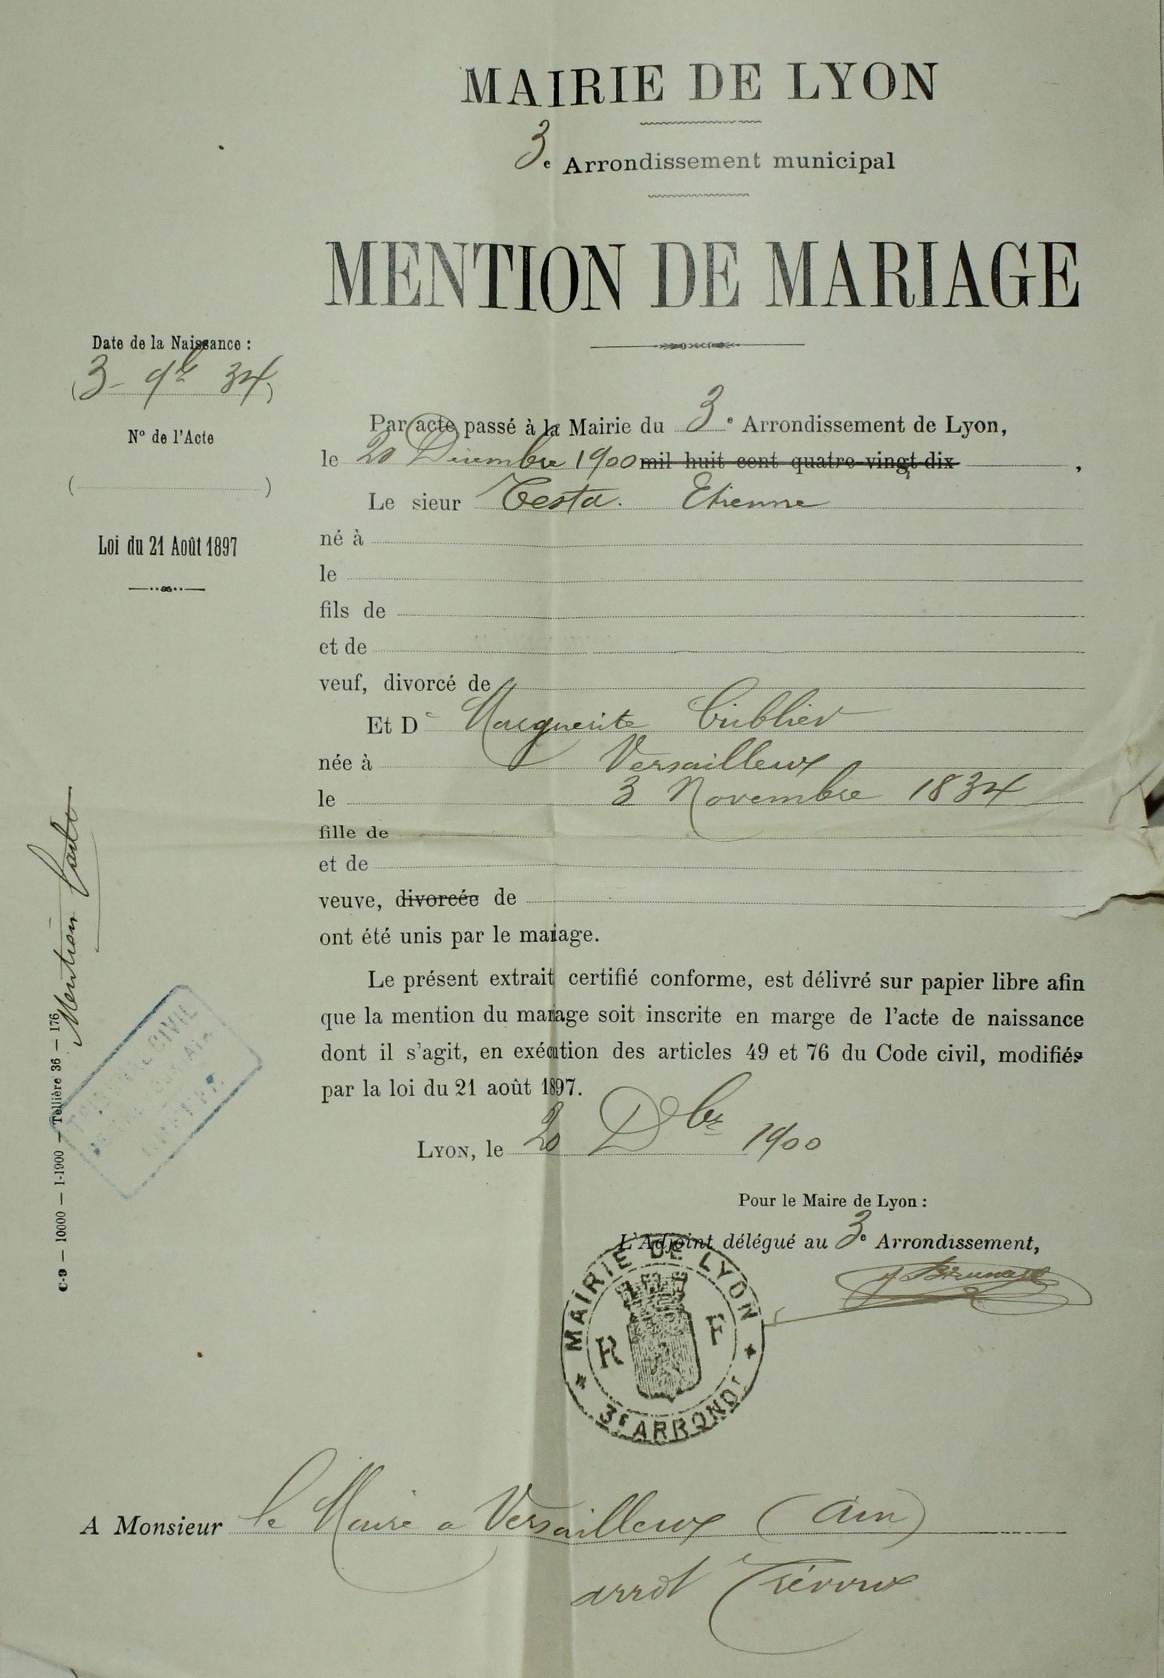 MAIRIE DE LYON
3e Arrondissement municipal
MENTION DE MARIAGE
Date de la Naissance :
(3 - 9bre 34)
N° de l'Acte
( )
Loi du 21 Août 1897
Par acte passé à la Mairie du 3e Arrondissement de Lyon,
le 20 Décembre 1900 mil huit cent quatre-vingt-dix ,
Le sieur Testa. Etienne
né à
le
fils de
et de
veuf, divorcé de
Et De Marguerite Cublier
née à Versailleux
le 3 Novembre 1834
fille de
et de
veuve, divorcée de
ont été unis par le maiage.
Le présent extrait certifié conforme, est délivré sur papier libre afin
que la mention du maiage soit inscrite en marge de l'acte de naissance
dont il s'agit, en exécution des articles 49 et 76 du Code civil, modifiés
par la loi du 21 août 1897.
Lyon, le 20 Dbre 1900
Pour le Maire de Lyon :
L'Adjoint délégué au 3e Arrondissement,
MAIRIE DE LYON
R F
3e ARRONDt
Mention
C-9 — 10000 — 1-1900 — Tellière 36 — 176
CIVIL
A Monsieur le Maire a Versailleux (Ain)
arrdt Trévoux